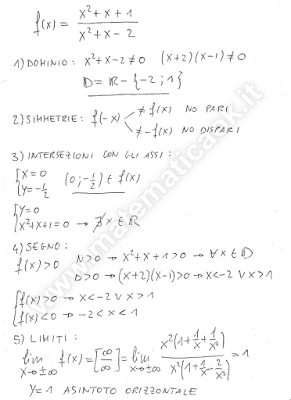 f(x) = x²+x+1 / x²+x-2
1) DOMINIO: x²+x-2≠0 (x+2)(x-1)≠0
D=ℝ-{-2;1}
2) SIMMETRIE: f(-x) ≠ f(x) NO PARI
≠ -f(x) NO DISPARI
3) INTERSEZIONI CON GLI ASSI:
{x=0
{y=-1/2 (0;-1/2) ∈ f(x)
{y=0
{x²+x+1=0 → ∄ x∈ℝ
4) SEGNO:
f(x)>0 N>0 → x²+x+1>0 → ∀x∈D
D>0 → (x+2)(x-1)>0 → x<-2 ∨ x>1
{f(x)>0 → x<-2 ∨ x>1
{f(x)<0 → -2<x<1
5) LIMITI:
lim x→±∞ f(x) = [∞/∞] = lim x→±∞ x²(1+1/x+1/x²) / x²(1+1/x-2/x²) = 1
y=1 ASINTOTO ORIZZONTALE
www.matematicaok.it